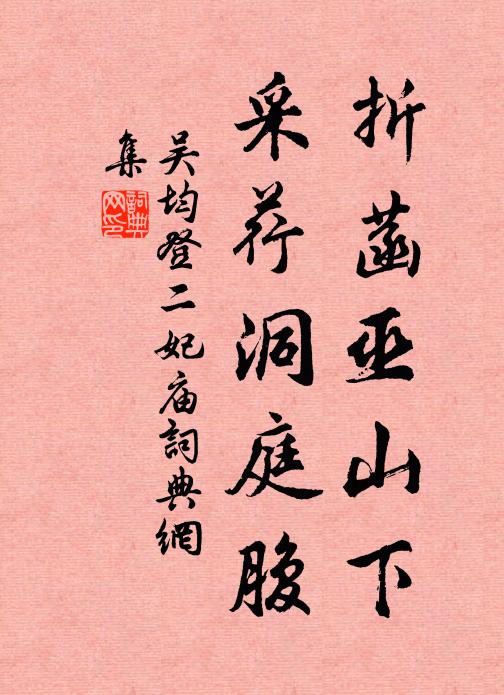 折菡巫山下
采荇洞庭腹
吴均登二妃庙詞典網
集
詞典
网印